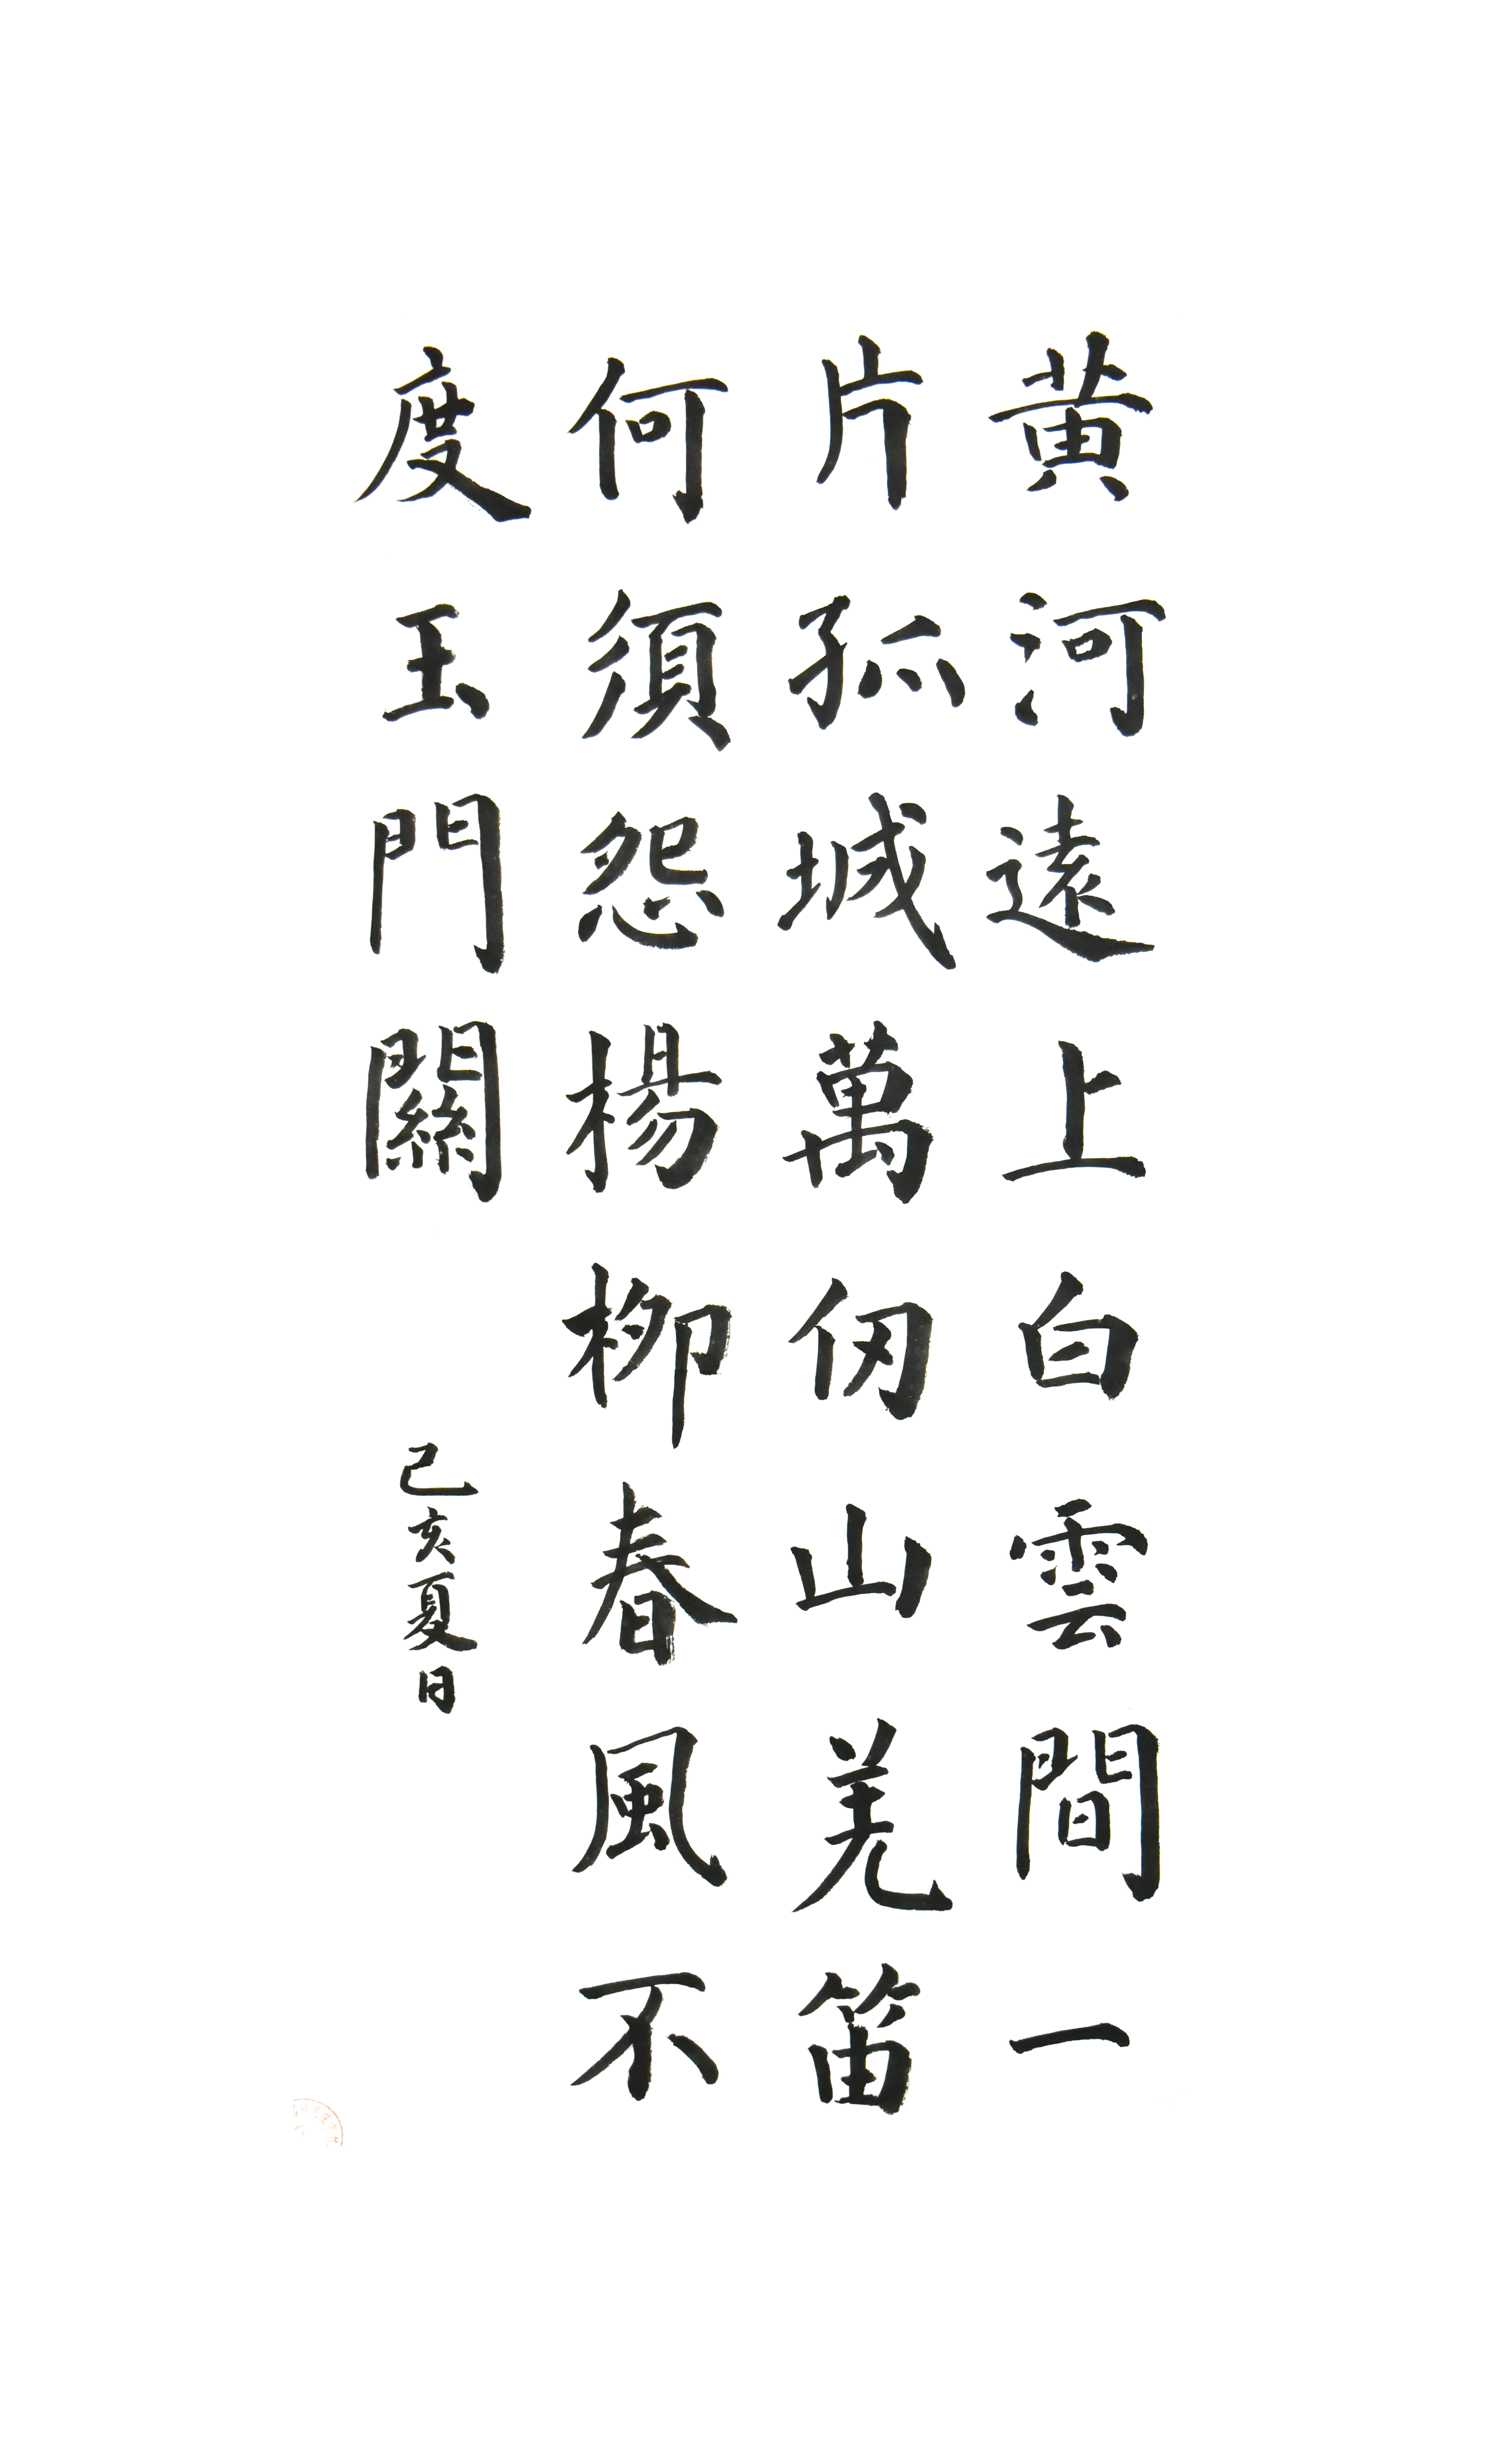 黄河遠上白雲間一
片孤城萬仞山羌笛
何須怨楊柳春風不
度玉門關
己亥夏日